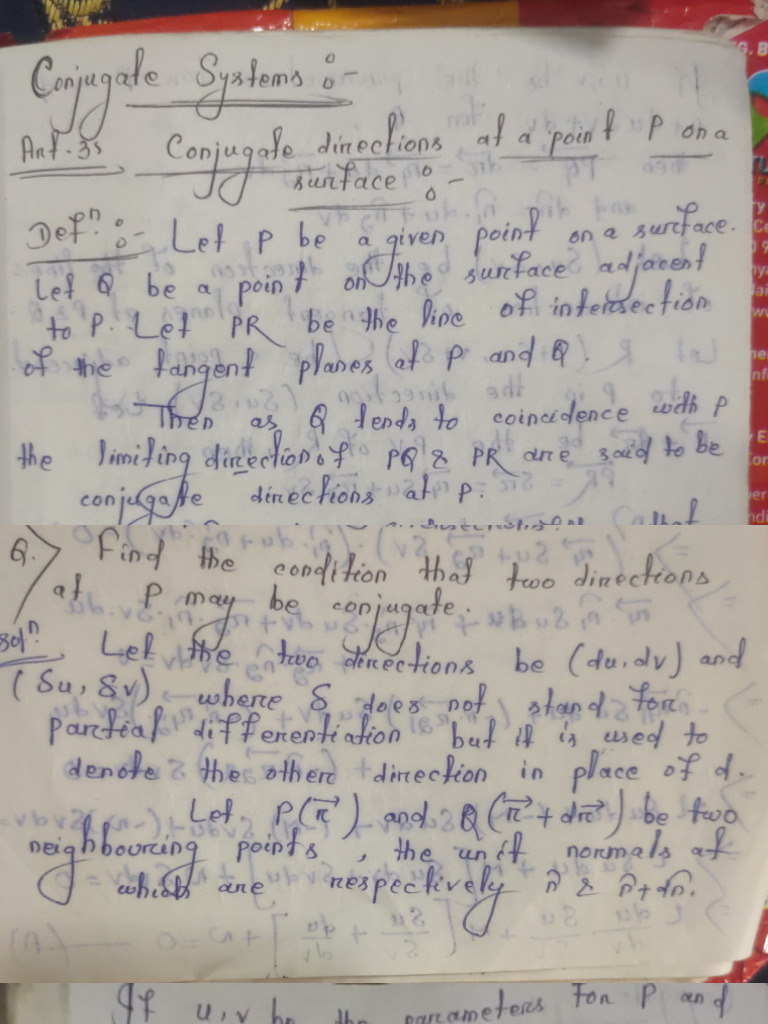 Conjugate Systems :-
Art-3s Conjugate directions at a point P on a
surface :-
Defⁿ :- Let P be a given point on a surface.
Let Q be a point on the surface adjacent
to P. Let PR be the line of intersection
of the tangent planes at P and Q.
Then as Q tends to coincidence with P
the limiting direction of PQ & PR are said to be
conjugate directions at P.
Q. Find the condition that two directions
at P may be conjugate.
Solⁿ. Let the two directions be (du, dv) and
(δu, δv) where δ does not stand for
partial differentiation but it is used to
denote the other direction in place of d.
Let P(r⃗) and Q(r⃗ + dr⃗) be two
neighbouring points, the unit normals at
which are respectively n̂ & n̂+dn̂.
If u, v be the parameters for P and